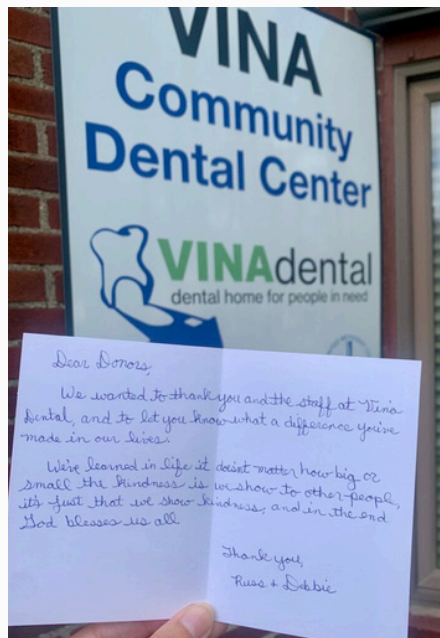 VINA
Community
Dental Center
VINAdental
dental home for people in need
Dear Donors,
We wanted to thank you and the staff at Vina
Dental, and to let you know what a difference you've
made in our lives.
We've learned in life it doesnt matter how big or
small the kindness is we show to other people,
it's just that we show kindness, and in the end
God blesses us all
Thank you,
Russ + Debbie